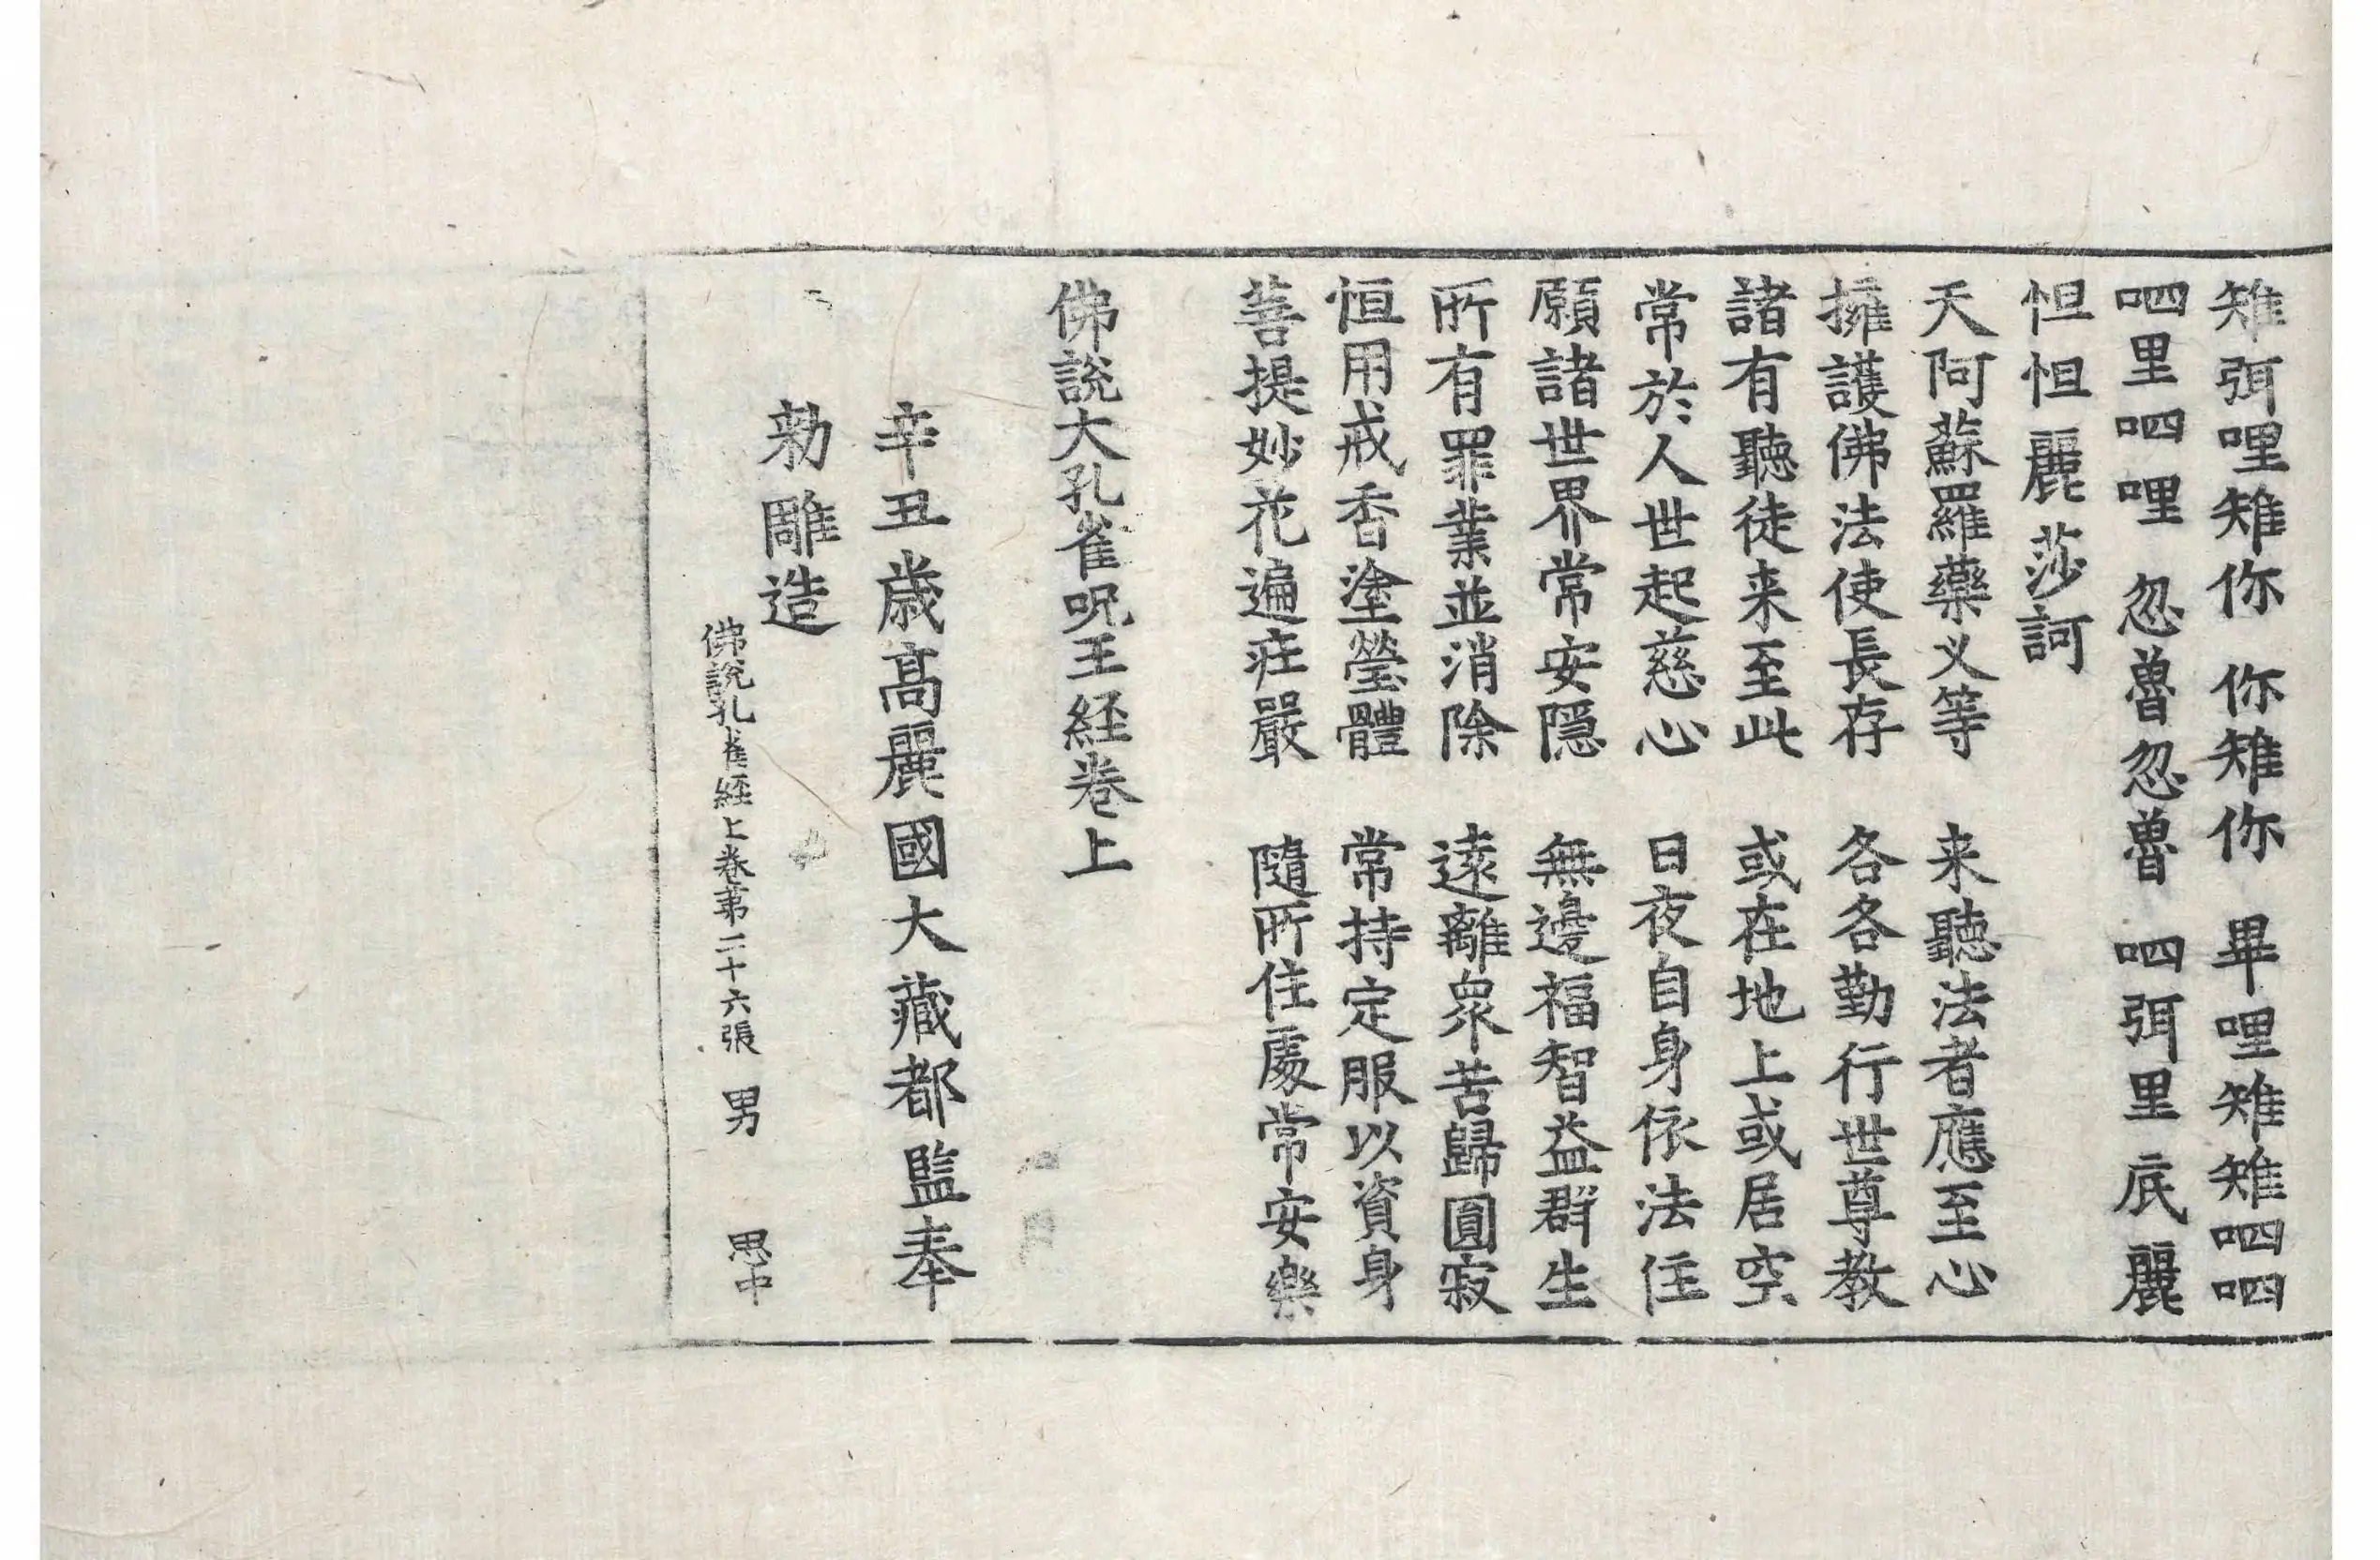 雉弭哩雉雉你 你雉你 畢哩雉雉呬呬
呬里呬哩 忽魯忽魯 呬弭里底麗
怛怛麗莎訶
天阿蘇羅藥义等 来聽法者應至心
擁護佛法使長存 各各勤行世尊教
諸有聽徒来至此 或在地上或居空
常於人世起慈心 日夜自身依法住
願諸世界常安隱 無邊福智益群生
所有罪業並消除 遠離衆苦歸圓寂
恒用戒香塗瑩體 常持定服以資身
菩提妙花遍莊嚴 隨所住處常安樂
佛說大孔雀呪王経卷上
辛丑歲高麗國大藏都監奉
勑雕造
佛說孔雀経上卷苐二十六張 男 思中